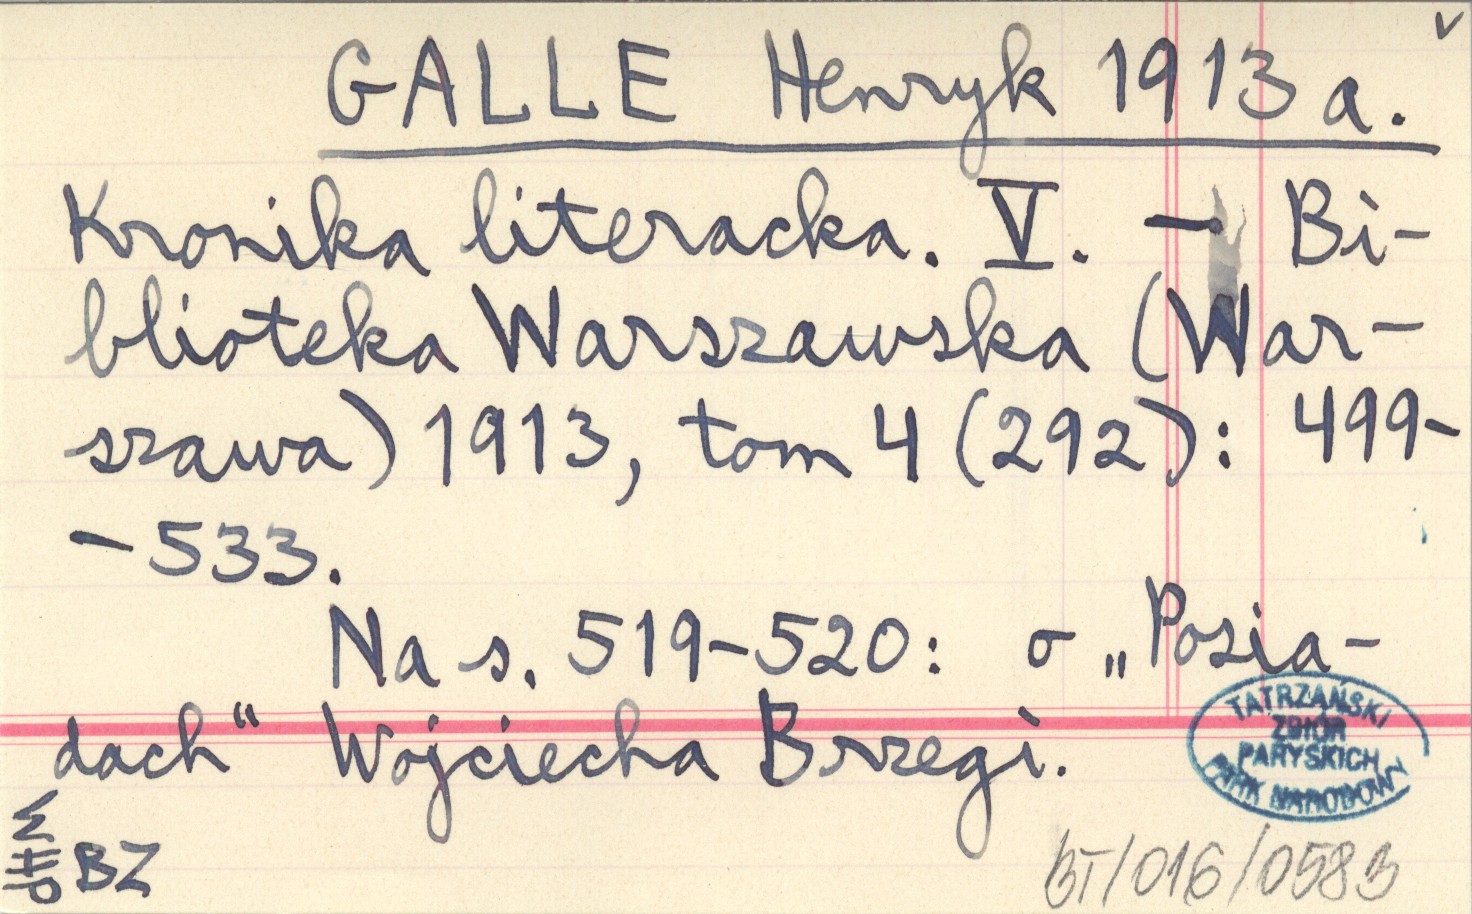 GALLE Henryk 1913 a.
Kronika literacka. V. - Bi-
blioteka Warszawska (War-
szawa) 1913, tom 4 (292): 499-
-533.
Na s. 519-520: o „Posia-
dach" Wojciecha Brzegi.
TATRZAŃSKI
ZBIÓR
PARYSKICH
PARK NARODOWY
BZ
BT/016/0583